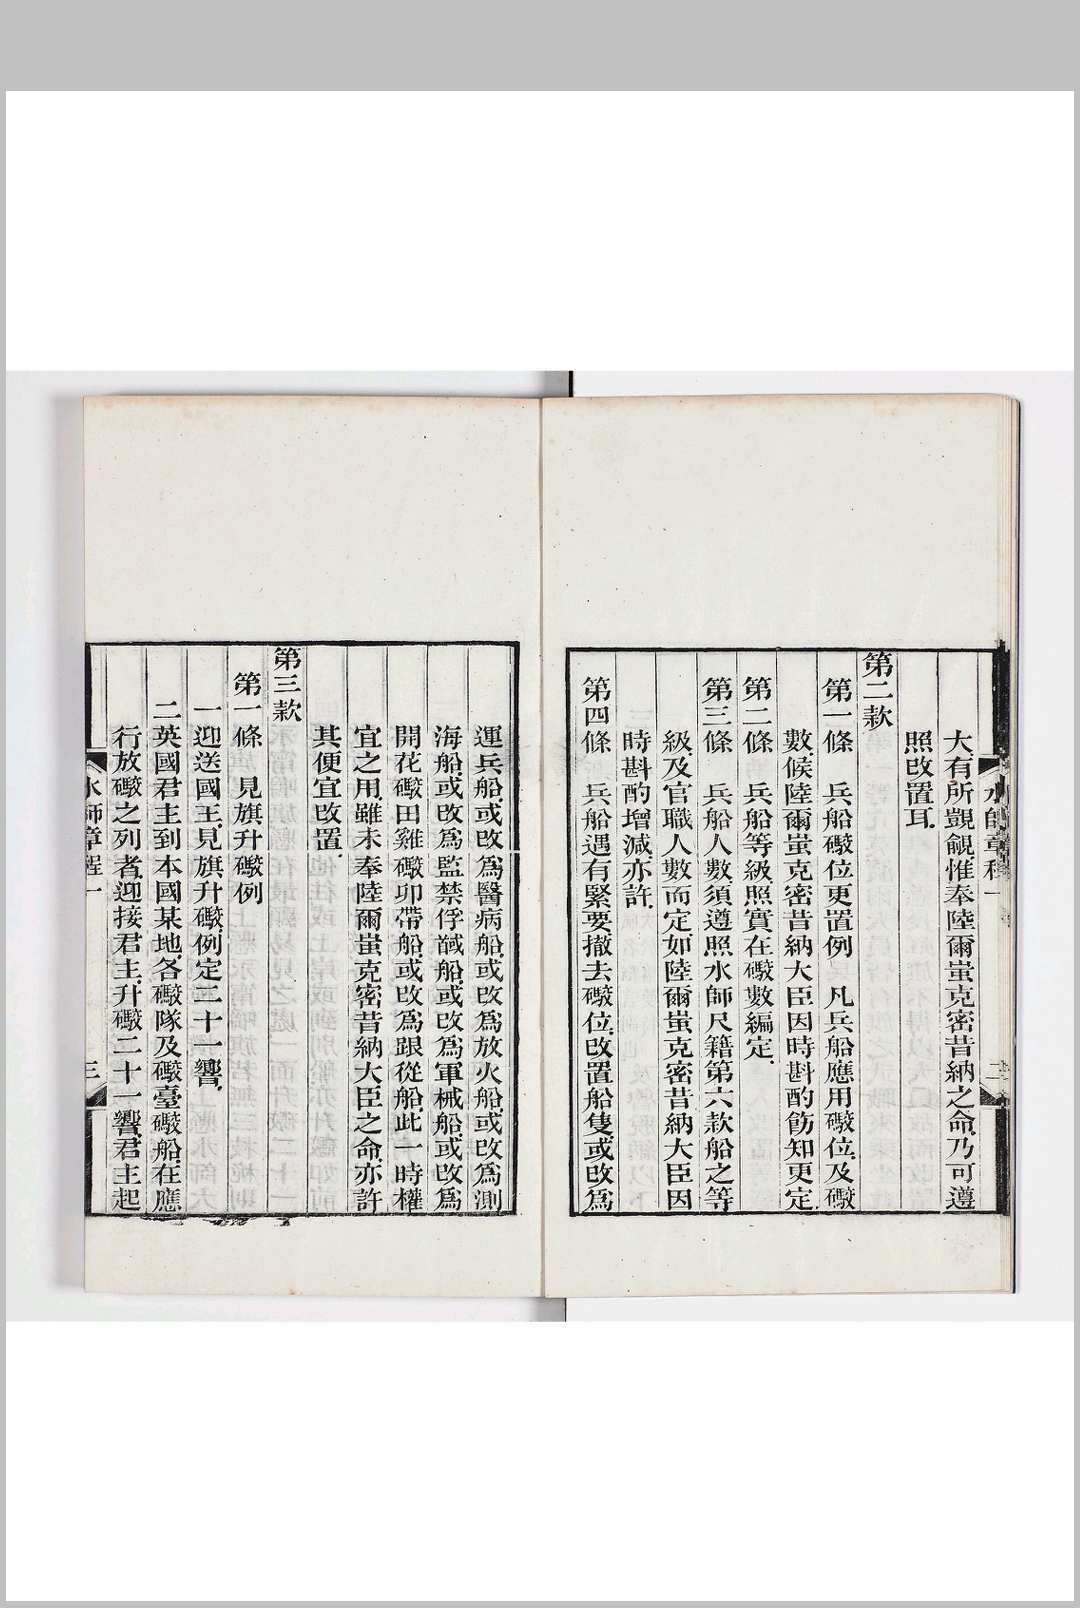 大有所覬覦惟奉陸爾蚩克密昔納之命.乃可遵
照改置耳.
第二款
第一條 兵船礮位更置例 凡兵船應用礮位.及礮
數.候陸爾蚩克密昔納大臣因時斟酌飭知更定.
第二條 兵船等級照實在礮數編定.
第三條 兵船人數須遵照水師尺籍第六款船之等
級.及官職人數而定.如陸爾蚩克密昔納大臣因
時斟酌增減.亦許.
第四條 兵船遇有緊要撤去礮位.改置船隻.或改為
運兵船.或改為醫病船.或改為放火船.或改為測
海船.或改為監禁俘馘船.或改為軍械船.或改為
開花礮田雞礮卯帶船.或改為跟從船.此一時權
宜之用.雖未奉陸爾蚩克密昔納大臣之命.亦許
其便宜改置.
第三款
第一條 見旗升礮例
一迎送國王.見旗升礮.例定二十一響.
二英國君主到本國某地.各礮隊及礮臺礮船在應
行放礮之列者.迎接君主.升礮二十一響.君主起
水師章程一 二
水師章程一 三